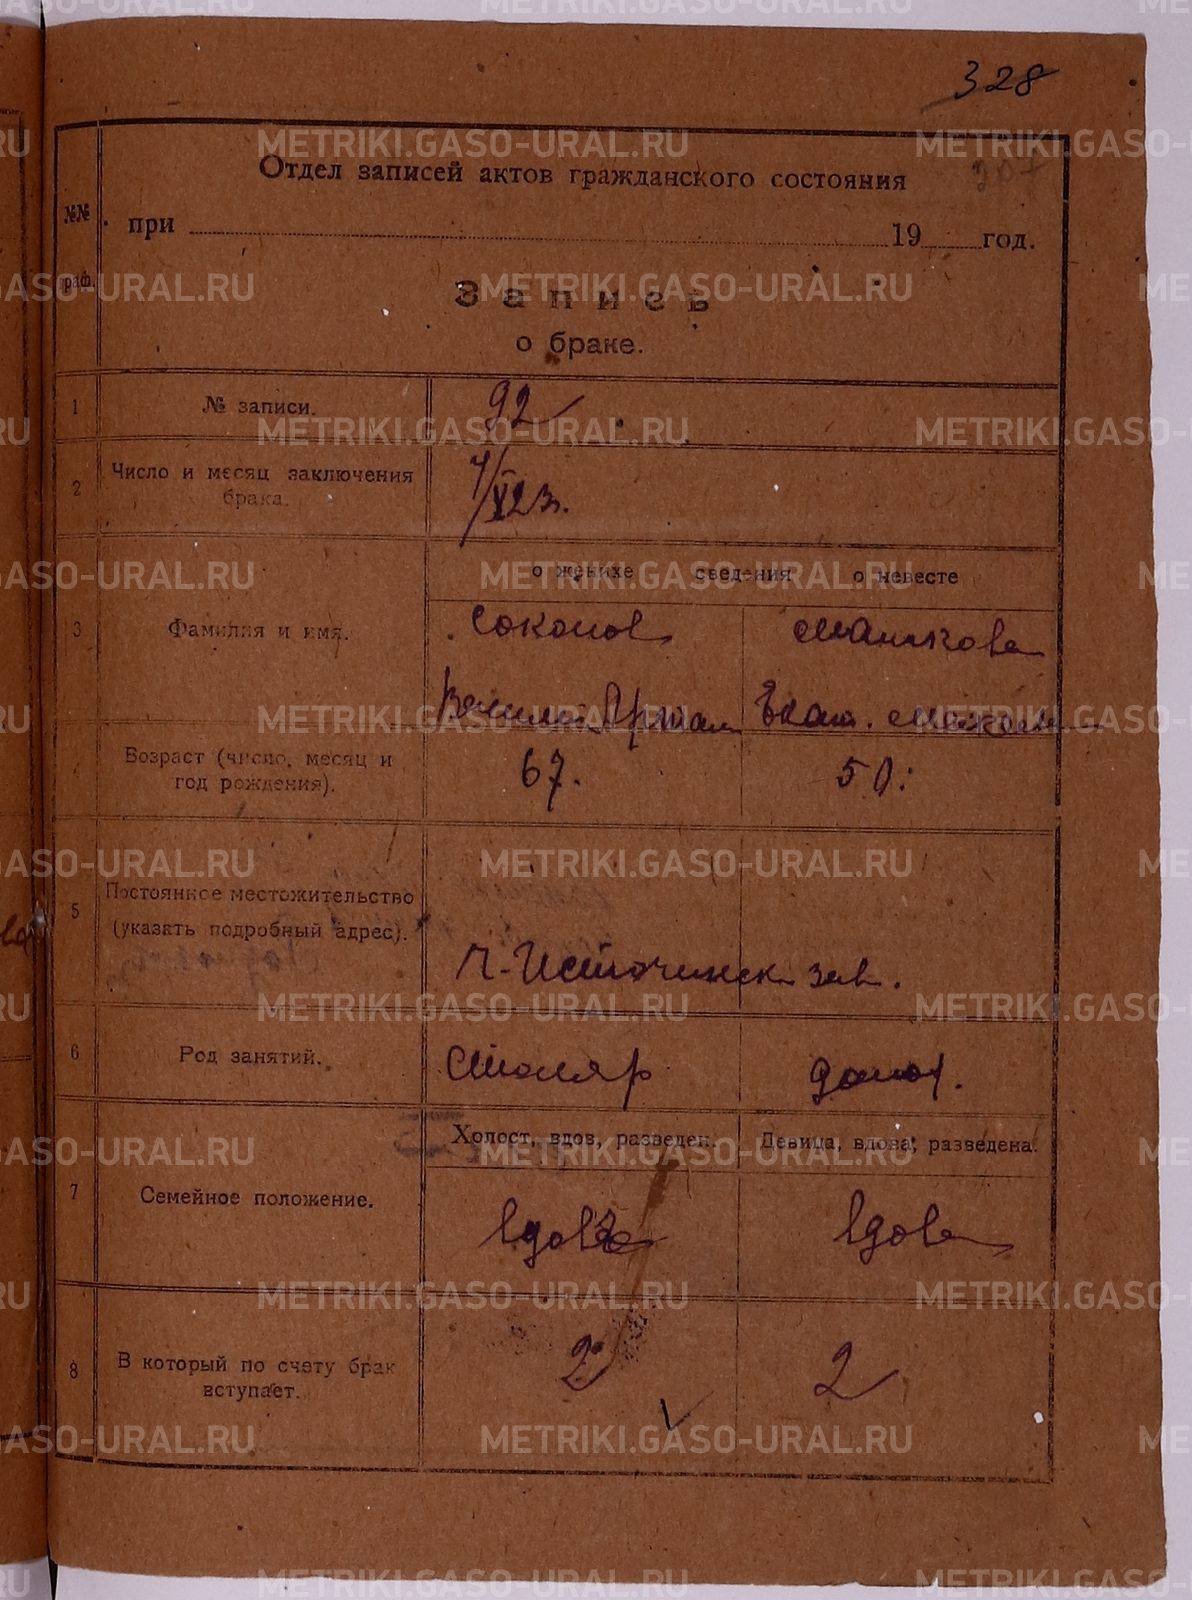 328
207
Отдел записей актов гражданского состояния
№№ граф.
при 19 год.
Запись
о браке.
1 № записи. 92
2 Число и месяц заключения брака. 7/V 23.
о женихе сведения о невесте
3 Фамилия и имя. Соколов Машкова
Василий Екат.
4 Возраст (число, месяц и год рождения). 67. 50.
5 Постоянное местожительство (указать подробный адрес). Ч-Источинск зав.
6 Род занятий. Столяр домох.
Холост, вдов, разведен. Девица, вдова, разведена.
7 Семейное положение. вдов вдова
8 В который по счету брак вступает. 2 2
METRIKI.GASO-URAL.RU